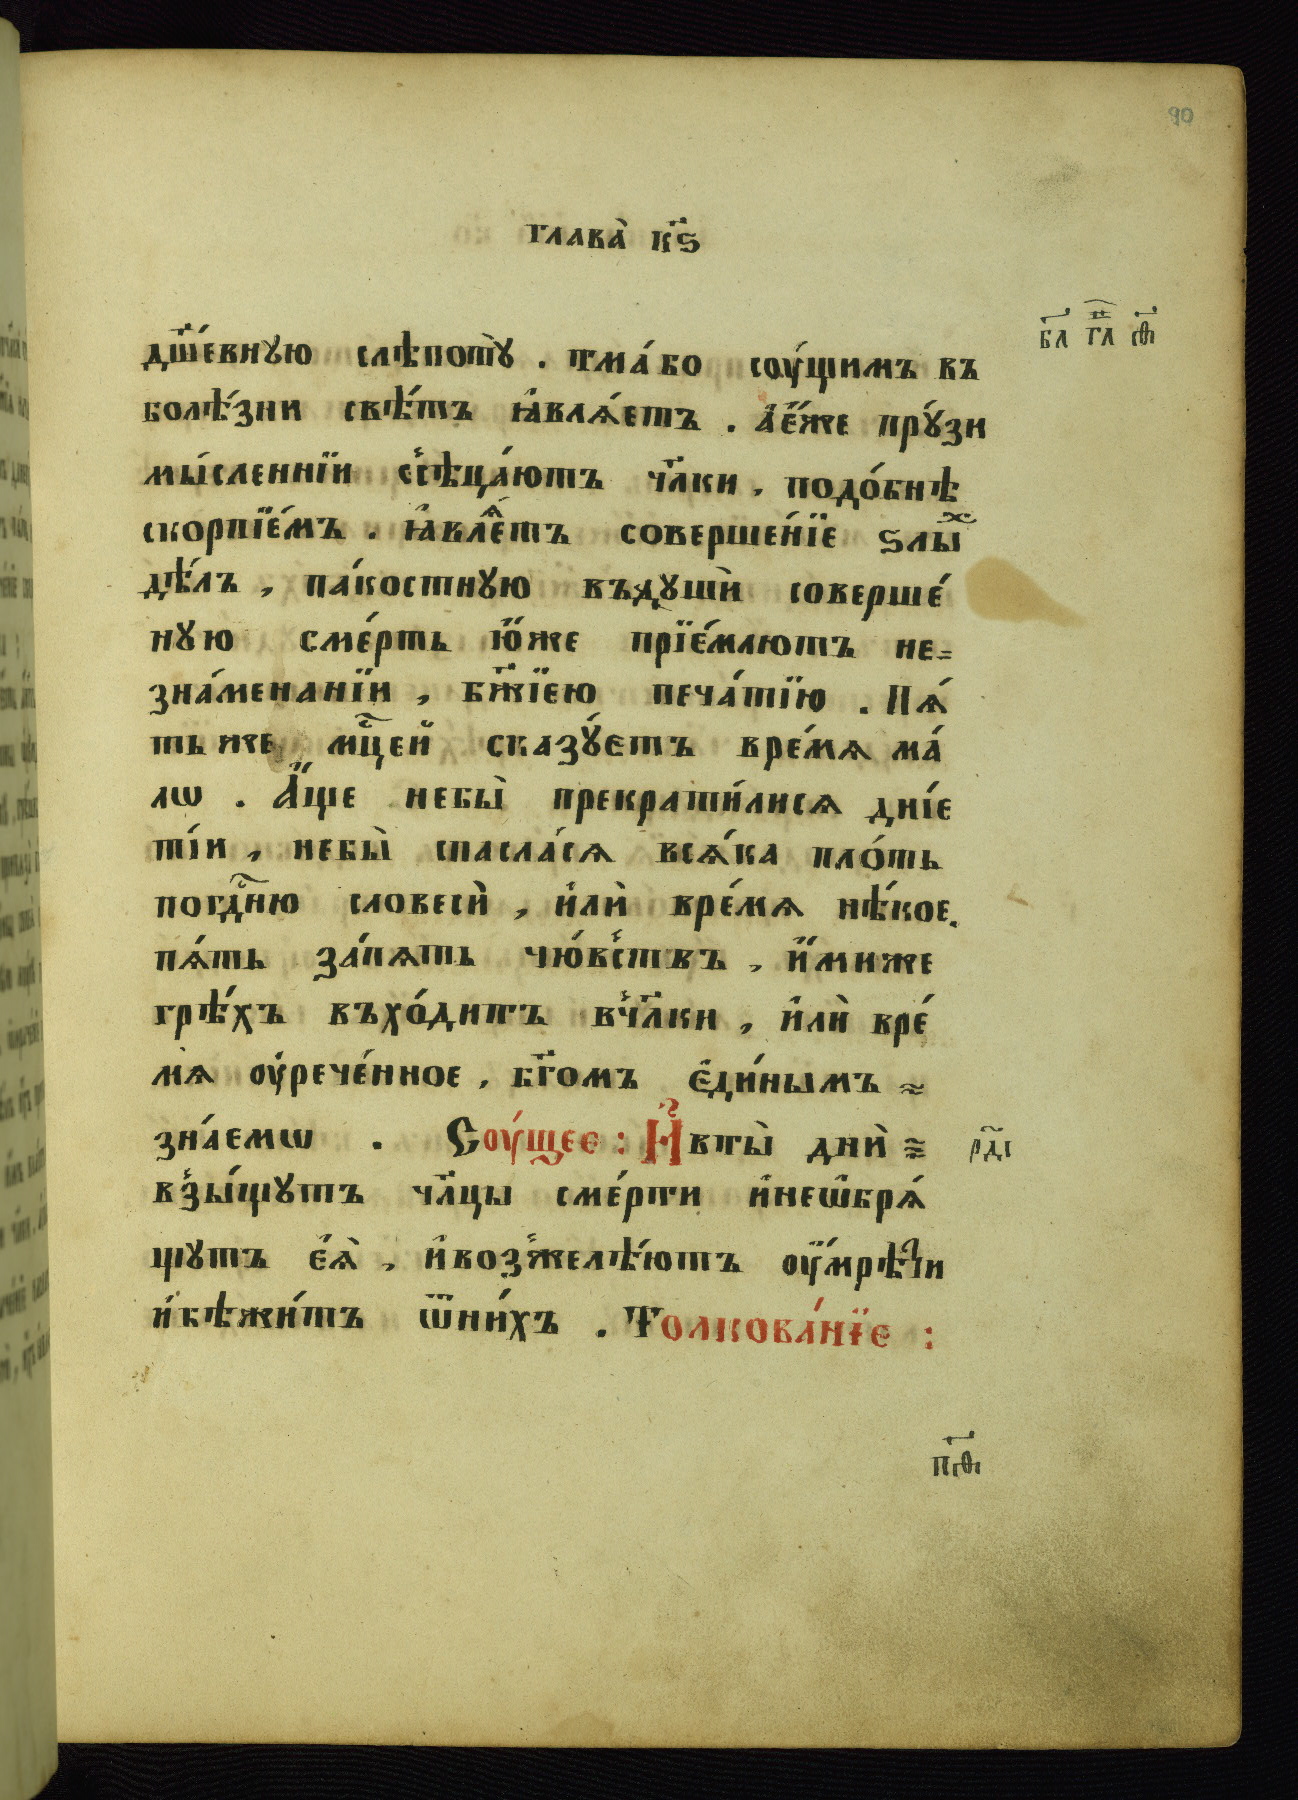 90
глава̀ к҃ѕ
дш҃е́вную слѣпотꙋ̀ . тма́ бо соу́щимъ въ
болѣ́зни свѣ́тъ ꙗ҆влѧ́етъ . А҆е҆́же прꙋ́зи
мы́сленнїи ссѣца́ютъ чл҃ки , подо́бнѣ
скорпїе́мъ . ꙗ҆влѧ́етъ соверше́нїе ѕлы́х
дѣ́лъ , па́костнꙋю въдꙋшѝ соверше́
нꙋю сме́рть ю҆́же прїе́млютъ не=
зна́менанїи , бж҃їею печа́тїю . Пѧ́
ть же мц҃ей сказꙋ́етъ вре́мѧ ма́
лѡ . А҆́ще небы̀ прекрати́лисѧ дні́е
ті́и , небы̀ спасла́сѧ всѧ́ка пло́ть
погдⷭ҇ню словесѝ , и҆лѝ вре́мѧ нѣ́кое .
пѧ́ть за́пѧть чю́вствъ , и҆́миже
грѣ́хъ въхо́дитъ вчл҃ки , и҆лѝ вре́
мѧ оу҆рече́нное , бг҃омъ е҆ди́нымъ
зна́емѡ . Соу́щее : И҆ вты̀ днѝ
взы́щꙋтъ чл҃цы сме́рти и҆неѡ҆брѧ́
щꙋтъ е҆ѧ̀ , и҆возжелѣ́ютъ оу҆мрѣ́ти
и҆бѣжи́тъ ѿни́хъ . Толкова́нїе :